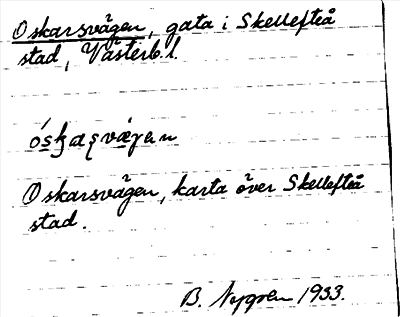 Oskarsvägen, gata i Skellefteå
stad, Västerb. l.
Oskarsvägen, karta över Skellefteå
stad.
B. Nygren 1933.